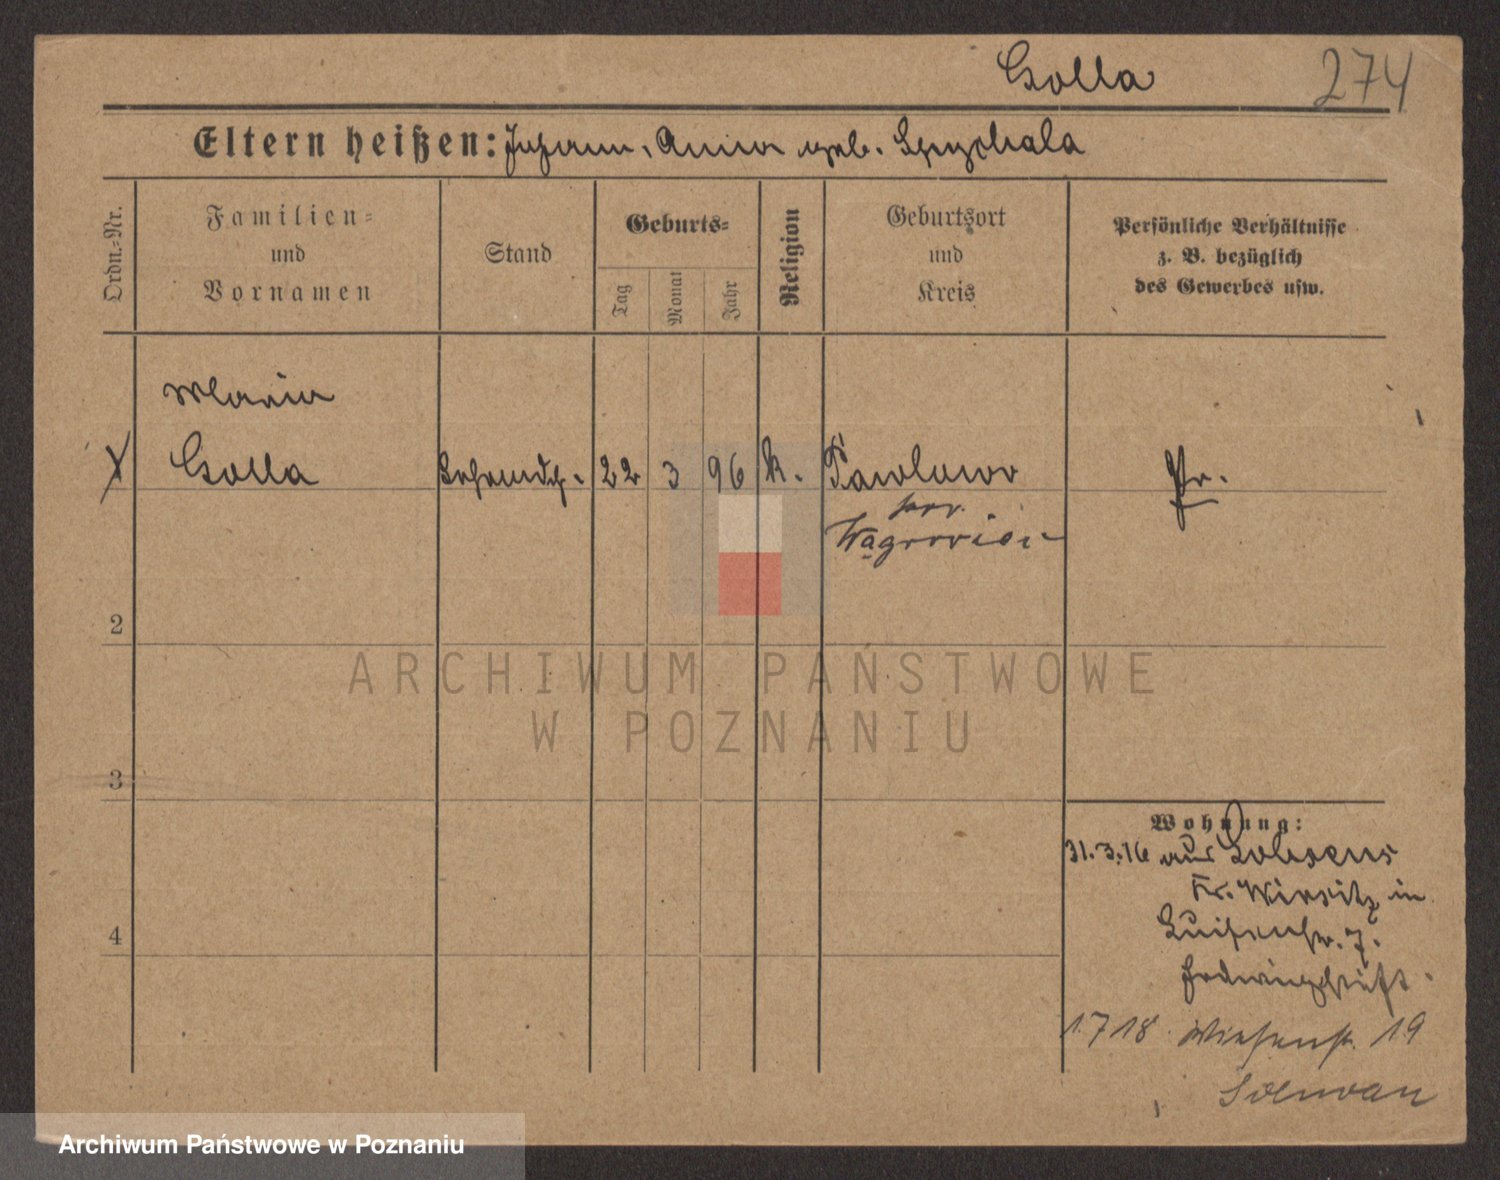 Golla
274
Eltern heißen: Johann, Anna geb. Spychala
Ordn.=Nr.
Familien=
und
Vornamen
Stand
Geburts=
Tag
Monat
Jahr
Religion
Geburtsort
und
Kreis
Persönliche Verhältnisse
z. B. bezüglich
des Gewerbes usw.
Maria
Golla
22
3
96
k.
Pawlowo
pow.
Wągrowiec
Pr.
2
3
4
ARCHIWUM PAŃSTWOWE
W POZNANIU
Wohnung:
31.3.16 aus Lobsens
Kr. Wirsitz in
Luisenstr. 7.
Hedwigstift.
1718 Wiesenstr. 19
Archiwum Państwowe w Poznaniu